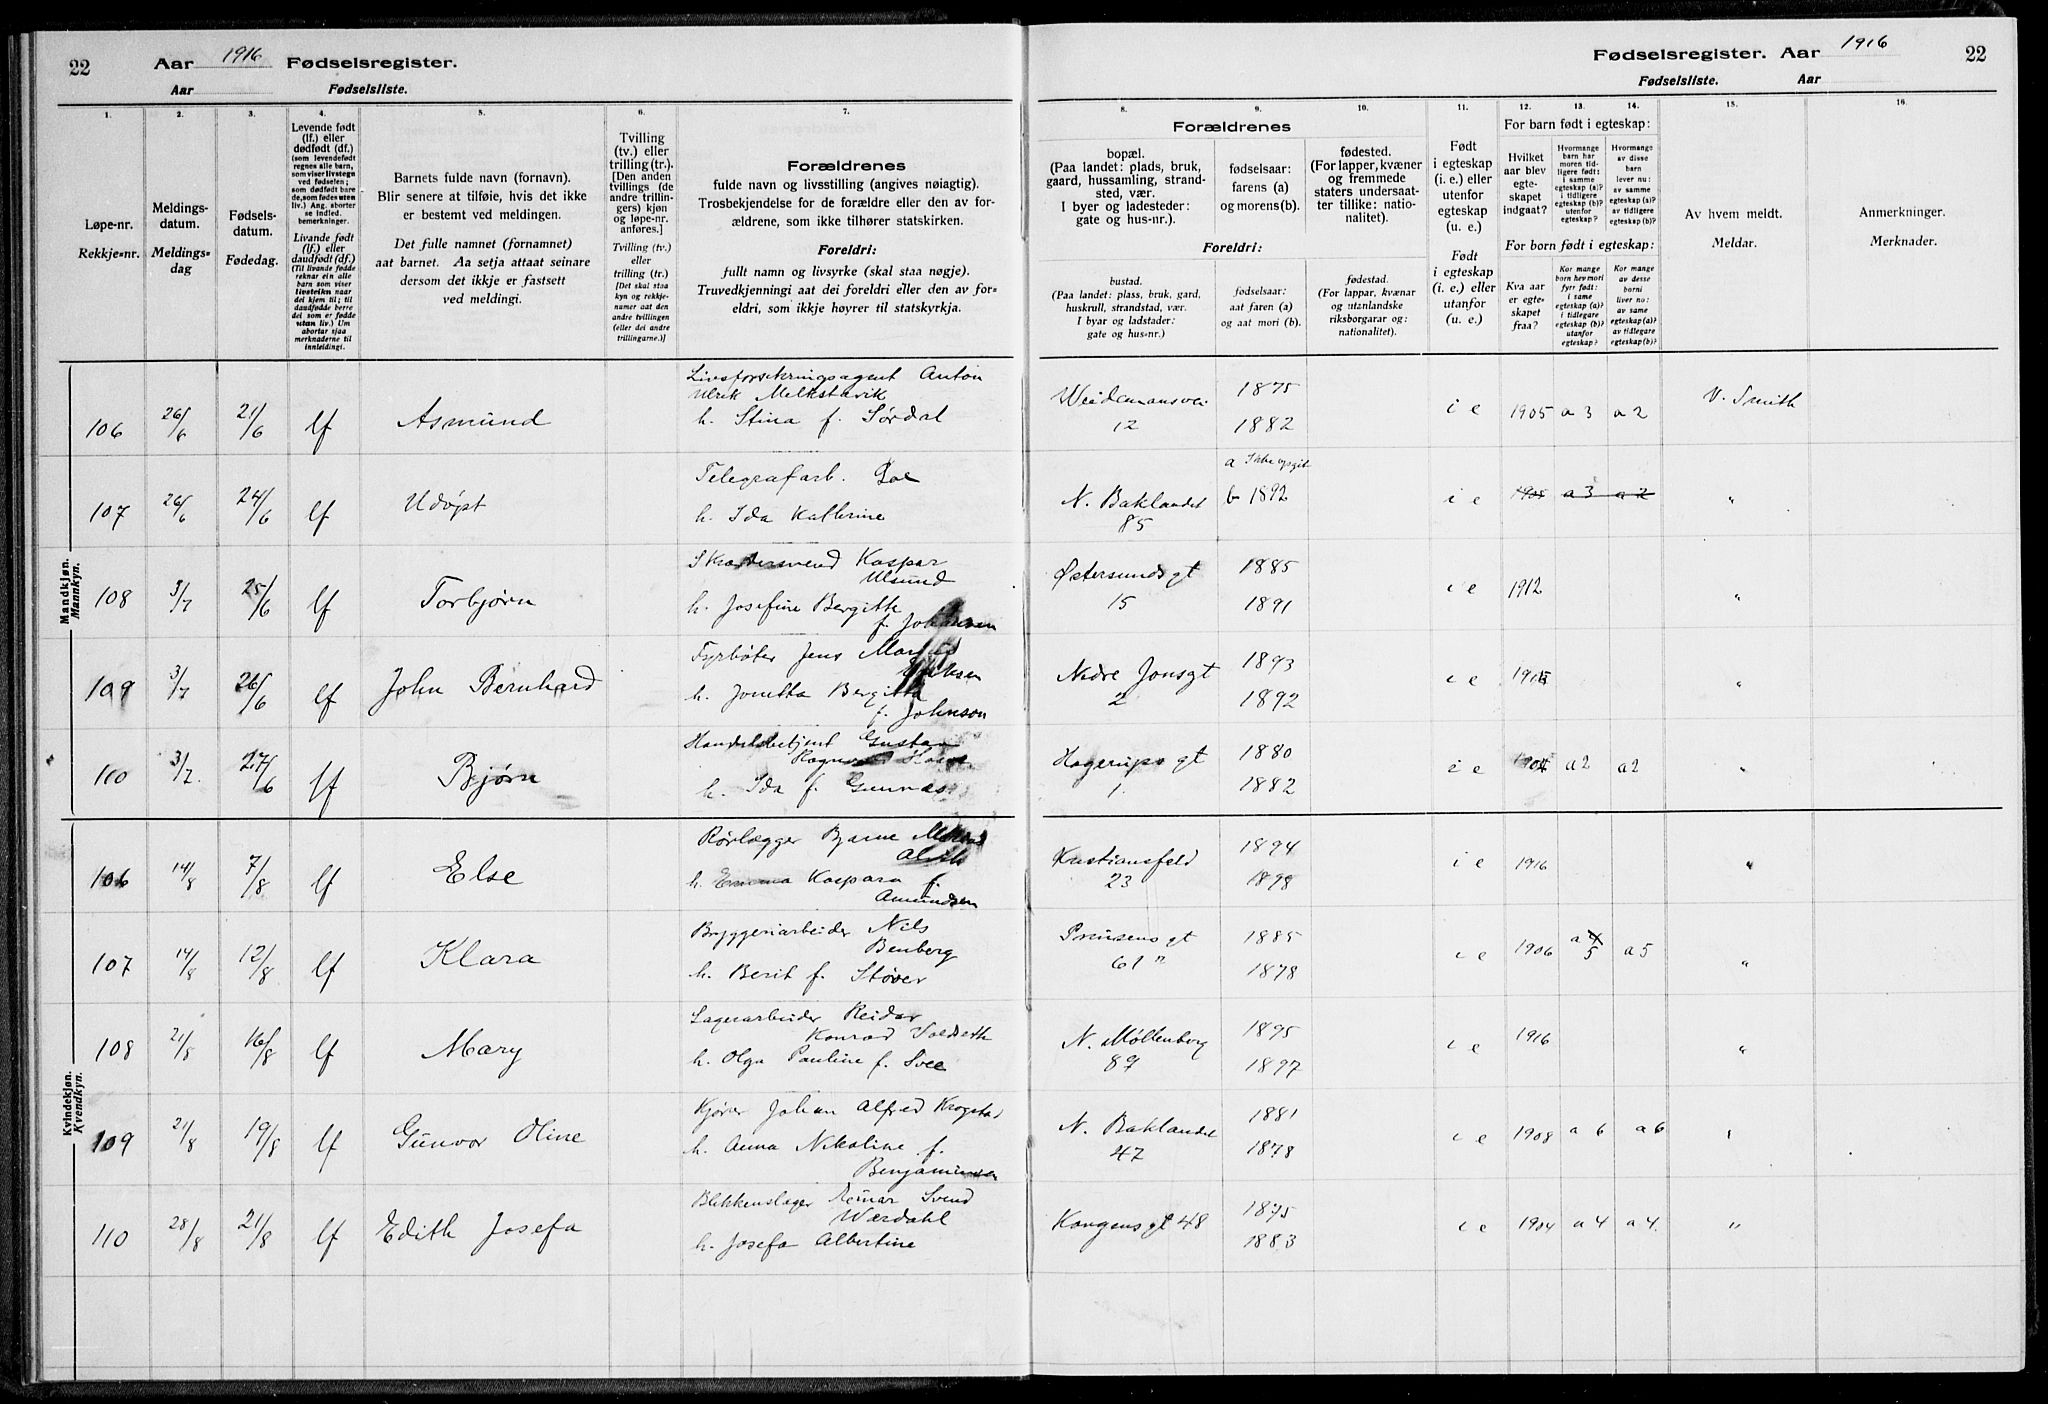 22
Aar 1916 Fødselsregister.
Aar Fødselsliste.
1.
Løpe-nr.
Rekkje-nr.
2.
Meldings-
datum.
Meldings-
dag
3.
Fødsels-
datum.
Fødedag.
4.
Levende født
(lf.) eller
dødfødt (df.)
(som levendefødt
regnes alle barn,
som viser livstegn
ved fødselen;
som dødfødt bare
de, som fødes uten
liv.) Ang. aborter
se indled.
bemerkninger.
Livande født
(lf.) eller
daudfødt (df.)
(Til livande fødde
reknar ein alle
barn som viser
livsteikn naar
dei kjem til; til
daudfødde berre
dei som er fødde
utan liv.) Um
abortar sjaa
merknaderne til
innleidingi.
5.
Barnets fulde navn (fornavn).
Blir senere at tilføie, hvis det ikke
er bestemt ved meldingen.
Det fulle namnet (fornamnet)
aat barnet. Aa setja attaat seinare
dersom det ikkje er fastsett
ved meldingi.
6.
Tvilling
(tv.) eller
trilling (tr.).
[Den anden
tvillings (de
andre trillin-
gers) kjøn
og løpe-nr.
anføres.]
Tvilling (tv.)
eller
trilling (tr.)
[Det skal staa
kyn og rekkje-
numer aat den
andre tvillingen
(eller dei andre
trillingarne.)]
7.
Forældrenes
fulde navn og livsstilling (angives nøiagtig).
Trosbekjendelse for de forældre eller den av for-
ældrene, som ikke tilhører statskirken.
Foreldri:
fullt namn og livsyrke (skal staa nøgje).
Truvedkjenningi aat dei foreldri eller den av for-
eldri, som ikkje høyrer til statskyrkja.
Mandkjøn.
Mannkyn.
106 26/6 21/6 lf Asmund
Livsforsikringsagent Anton
Ulrik Melkstavik
h. Stina f. Sørdal
107 26/6 24/6 lf Udøpt
Telegrafarb.
h. Ida Kathrine
108 3/7 25/6 lf Torbjørn
Kaspar
Ulsund
h. Josefine Bergitte
f. Johansen
109 3/7 26/6 lf John Bernhard
Fyrbøter Jens
h. Bergitta
f. Johnson
110 3/7. 27/6 lf Bjørn
Handelsbetjent Gustav
h. Ida f.
Kvindekjøn.
Kvendkyn.
106 14/8 7/8 lf Else
Rørlægger Bjarne
h. Emma Kaspara f.
Amundsen
107 14/8 12/8 lf Klara
Bryggeriarbeider Nils
Benberg
h. Berit f. Støver
108 21/8 16/8 lf Mary
Lagerarbeider Reidar
Konrad
h. Olga Pauline f. Svee
109 21/8 19/8 lf Gunvor Oline
Kjører Johan Alfred Krogstad
h. Anna Nikoline f.
Benjaminsen
110 28/8 21/8 lf Edith Josefa
Blikkenslager Svend
Wærdahl
h. Josefa Albertine
Fødselsregister. Aar 1916
22
Fødselsliste. Aar
8.
9.
10.
Forældrenes
bopæl.
(Paa landet: plads, bruk,
gaard, hussamling, strand-
sted, vær.
I byer og ladesteder:
gate og hus-nr.)
fødselsaar:
farens (a)
og morens (b).
fødested.
(For lapper, kvæner
og fremmede
staters undersaat-
ter tillike: natio-
nalitet).
Foreldri:
bustad.
(Paa landet: plass, bruk, gard,
huskrull, strandstad, vær.
I byar og ladstader:
gate og hus-nr.)
fødselsaar:
aat faren (a)
og aat mori (b).
fødestad.
(For lappar, kvænar
og utanlandske
riksborgarar og:
nationalitet).
11.
Født
i egteskap
(i. e.) eller
utenfor
egteskap
(u. e.)
Født
i egteskap
(i. e.) eller
utanfor
egteskap
(u. e.).
12.
13.
14.
For barn født i egteskap:
Hvilket
aar blev
egte-
skapet
indgaat?
Hvormange
barn har
moren tid-
ligere født:
i samme
egteskap (a)?
i tidligere
egteskap (b)?
utenfor
egteskap?
Hvormange
av disse
barn
lever nu:
av samme
egteskap (a)?
av tidligere
egteskap (b)?
For born født i egteskap:
Kva aar
er egte-
skapet
fraa?
Kor mange
born hev mori
fyrr født:
i same
egteskap (a)?
i tidlegare
egteskap (b)?
utanfor
egteskap?
Kor mange
av desse
borni
liver no:
av same
egteskap (a)?
av tidlegare
egteskap (b)?
15.
Av hvem meldt.
Meldar.
16.
Anmerkninger.
Merknader.
Weidemansvei 1875 i e 1905 a 3 a 2 V. Smith
12 1882
a Ikke opgit
N. Baklandet b 1892 i e 1905 a 3 a 2 "
85
Østersundsgt 1885 i e 1912 "
15 1891
Nedre Jonsgt 1893 i e "
2 1892
Hagerups gt 1880 i e a2 a2 "
1. 1882
Kristiansfeld 1894 i e 1916 "
23 1898
Prinsens gt 1885 i e 1906 a 4 5 a 5 "
61" 1878
N. Møllenberg 1895 i e 1916 "
89 1897
N. Baklandet 1881 i e 1908 a 6 a 6 "
47 1878
Kongens gt 48 1875 i e 1904 a 4 a 4. "
1883